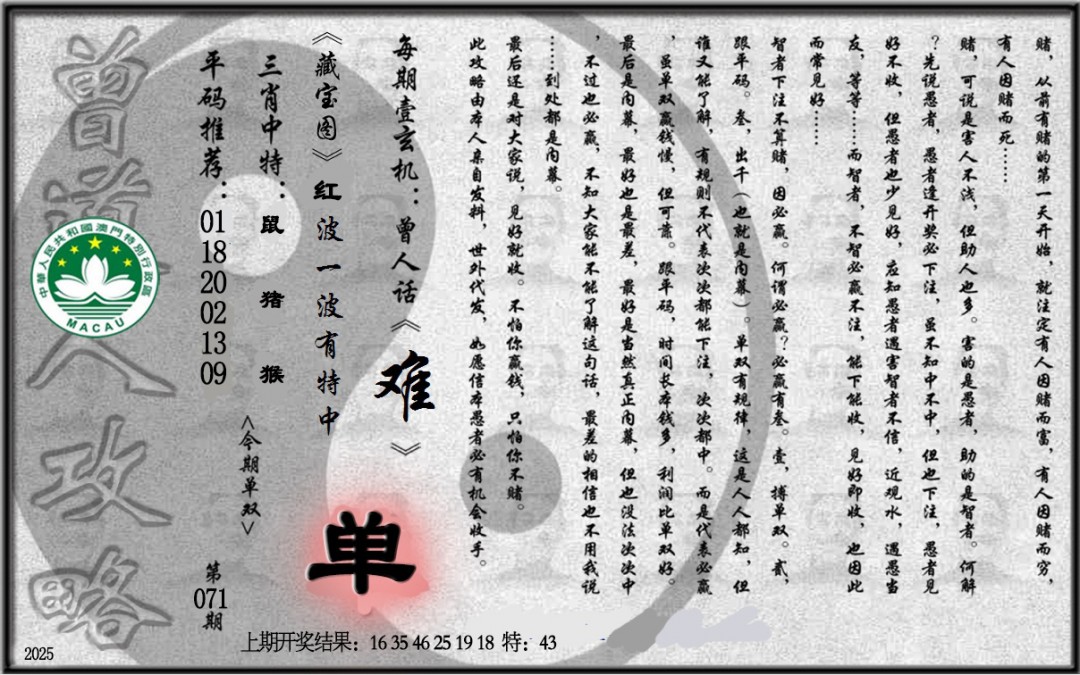 赌，从前有赌的第一天开始，就注定有人因赌而富，有人因赌而穷，
有人因赌而死……
赌，可说是害人不浅，但助人也多。害的是愚者，助的是智者。何解
？先说愚者，愚者逢开奖必下注，虽不知中不中，但也下注，愚者见
好不收，但愚者也少见好，应知愚者遇害智者不信，近观水，遇愚当
友，等等……而智者，不智必赢不注，能下能收，见好即收，也因此
而常见好……
智者下注不算赌，因必赢。何谓必赢？必赢有叁。壹，搏单双。贰，
跟平码。叁，出千（也就是内幕）。单双有规律，这是人人都知，但
谁又能了解，有规则不代表次次都能下注，次次都中。而是代表必赢
，虽单双赢钱慢，但可靠。跟平码，时间长本钱多，利润比单双好。
最后是内幕，最好也是最差，最好是当然真正内幕，但也没法次次中
，不过也必赢，不知大家能不能了解这句话，最差的相信也不用我说
……到处都是内幕。
最后还是对大家说，见好就收。不怕你赢钱，只怕你不赌。
此攻略由本人亲自发料，世外代发，如愿信本愚者必有机会收手。
每期壹玄机：曾人话《难》
《藏宝图》红波一波有特中
三肖中特：鼠 猪 猴
平码推荐：01 18 20 02 13 09
<今期单双>
单
第071期
曾道人攻略
中華人民共和國澳門特別行政區
MACAU
上期开奖结果：16 35 46 25 19 18 特：43
2025